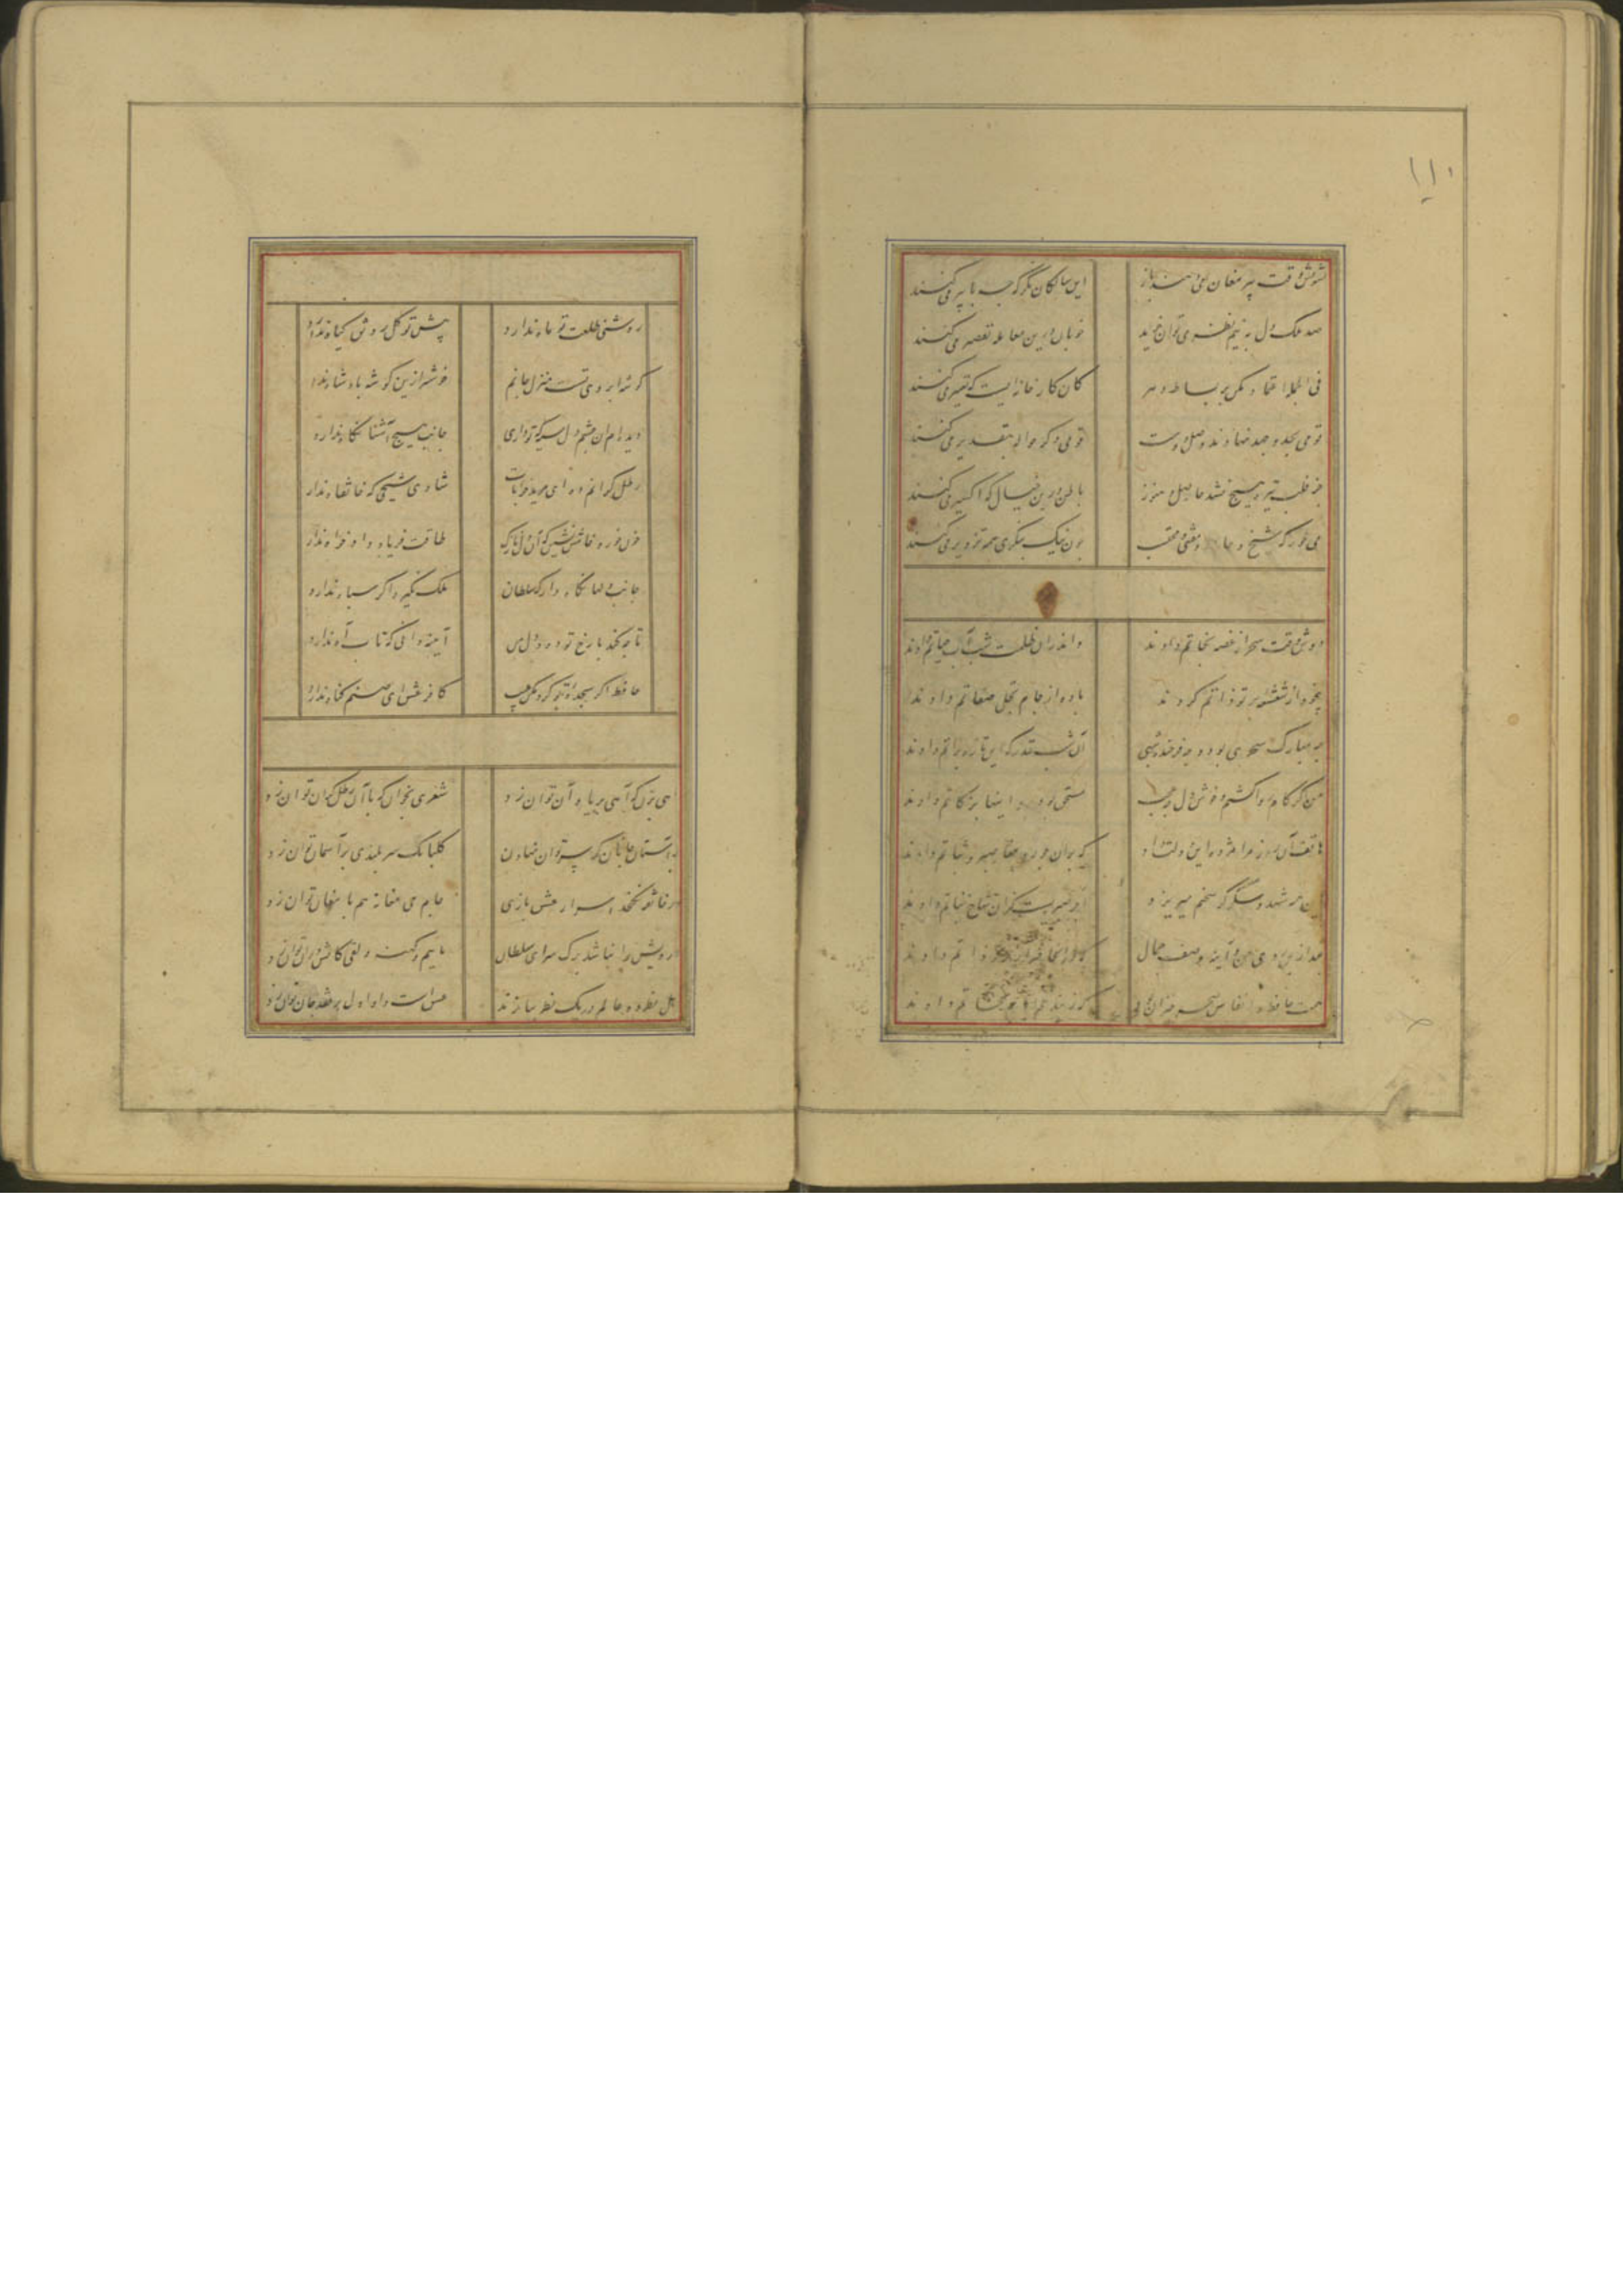 ۱۱۰
تشویش وقت پیر مغان می‌دهند باز این سالکان نگر که چه با پیر می‌کنند
صد ملک دل به نیم نظر می‌توان خرید خوبان درین معامله تقصیر می‌کنند
فی الجمله اعتماد مکن بر ثبات دهر کان کارخانه‌ایست که تغییر می‌کنند
قومی بجد و جهد نهادند وصل دوست قومی دگر حواله بتقدیر می‌کنند
جز قلب تیره هیچ نشد حاصل و هنوز باطل درین خیال که اکسیر می‌کنند
می خور که شیخ و حافظ و مفتی و محتسب چون نیک بنگری همه تزویر می‌کنند
دوش وقت سحر از غصه نجاتم دادند واندران ظلمت شب آب حیاتم دادند
بیخود از شعشعه پرتو ذاتم کردند باده از جام تجلی صفاتم دادند
چه مبارک سحری بود و چه فرخنده شبی آن شب قدر که این تازه براتم دادند
من اگر کام روا گشتم و خوش دل چه عجب مستحق بودم و اینها بزکاتم دادند
هاتف آن روز مرا مژده این دولت داد که بران جور و جفا صبر و ثباتم دادند
این همه شهد و شکر کز سخنم میریزد اجر صبریست کزان شاخ نباتم دادند
بعد ازین روی من و آینه وصف جمال که در آنجا خبر از جلوه ذاتم دادند
همت حافظ و انفاس سحر خیزان بود که ز بند غم ایام نجاتم دادند
روشنی طلعت تو ماه ندارد پیش تو گل رونق گیاه ندارد
گوشه ابروی تست منزل جانم خوشتر ازین گوشه پادشاه ندارد
دیدم و آن چشم دل سیه که تو داری جانب هیچ آشنا نگاه ندارد
رطل گرانم ده ای مرید خرابات شادی شیخی که خانقاه ندارد
خون خور و خامش نشین که آن دل نازک طاقت فریاد دادخواه ندارد
جانب دلها نگاه دار که سلطان ملک نگیرد اگر سپاه ندارد
تا چه کند با رخ تو دود دل من آینه دانی که تاب آه ندارد
حافظ اگر سجده تو کرد مکن عیب کافر عشق ای صنم گناه ندارد
راهی بزن که آهی بر یاد آن توان زد شعری بخوان که با آن رطل گران توان زد
بر آستان جانان گر سر توان نهادن گلبانگ سربلندی بر آسمان توان زد
در خانقه نگنجد اسرار عشق بازی جام می مغانه هم با مغان توان زد
درویش را نباشد برگ سرای سلطان ماییم و کهنه دلقی کاتش در آن توان زد
اهل نظر دو عالم در یک نظر ببازند عشق است و داو اول بر نقد جان توان زد